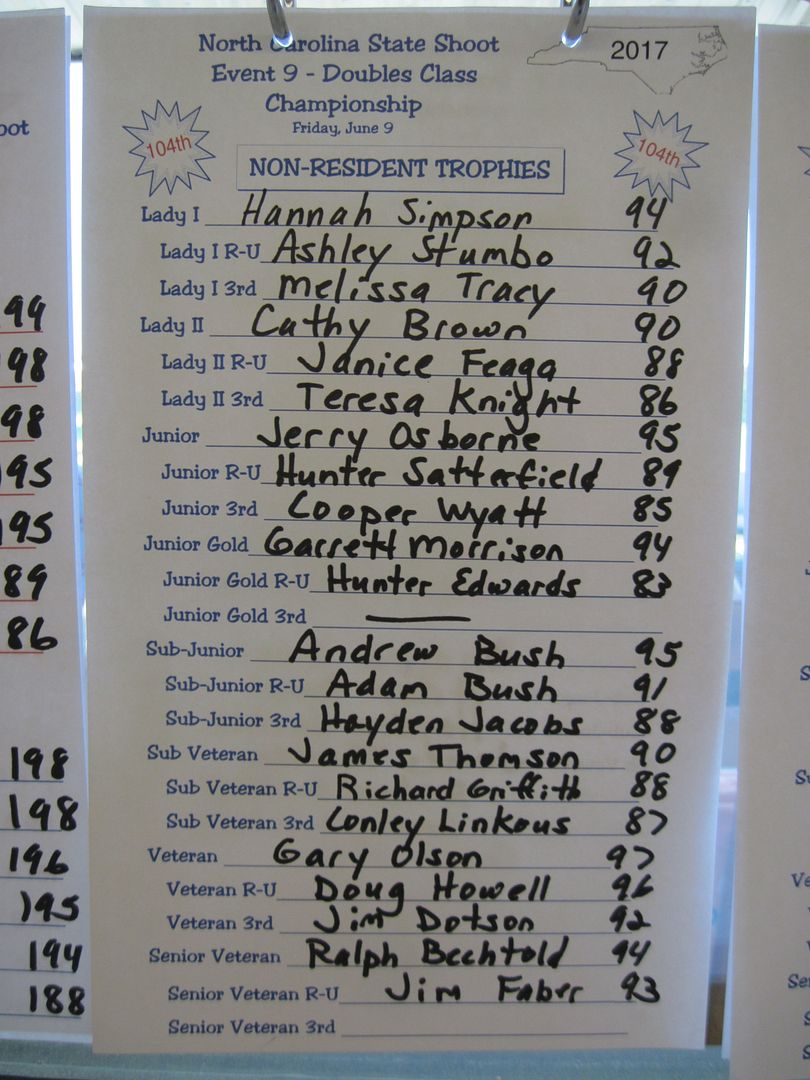 North Carolina State Shoot
2017
Event 9 - Doubles Class
Championship
Friday, June 9
104th
104th
NON-RESIDENT TROPHIES
Lady I Hannah Simpson 94
Lady I R-U Ashley Stumbo 92
Lady I 3rd Melissa Tracy 90
Lady II Cathy Brown 90
Lady II R-U Janice Feaga 88
Lady II 3rd Teresa Knight 86
Junior Jerry Osborne 95
Junior R-U Hunter Satterfield 89
Junior 3rd Cooper Wyatt 85
Junior Gold Garrett Morrison 94
Junior Gold R-U Hunter Edwards 83
Junior Gold 3rd
Sub-Junior Andrew Bush 95
Sub-Junior R-U Adam Bush 91
Sub-Junior 3rd Hayden Jacobs 88
Sub Veteran James Thomson 90
Sub Veteran R-U Richard Griffith 88
Sub Veteran 3rd Conley Linkous 87
Veteran Gary Olson 97
Veteran R-U Doug Howell 96
Veteran 3rd Jim Dotson 92
Senior Veteran Ralph Bechtold 94
Senior Veteran R-U Jim Faber 93
Senior Veteran 3rd
99
98
98
95
95
89
86
198
198
196
195
194
188